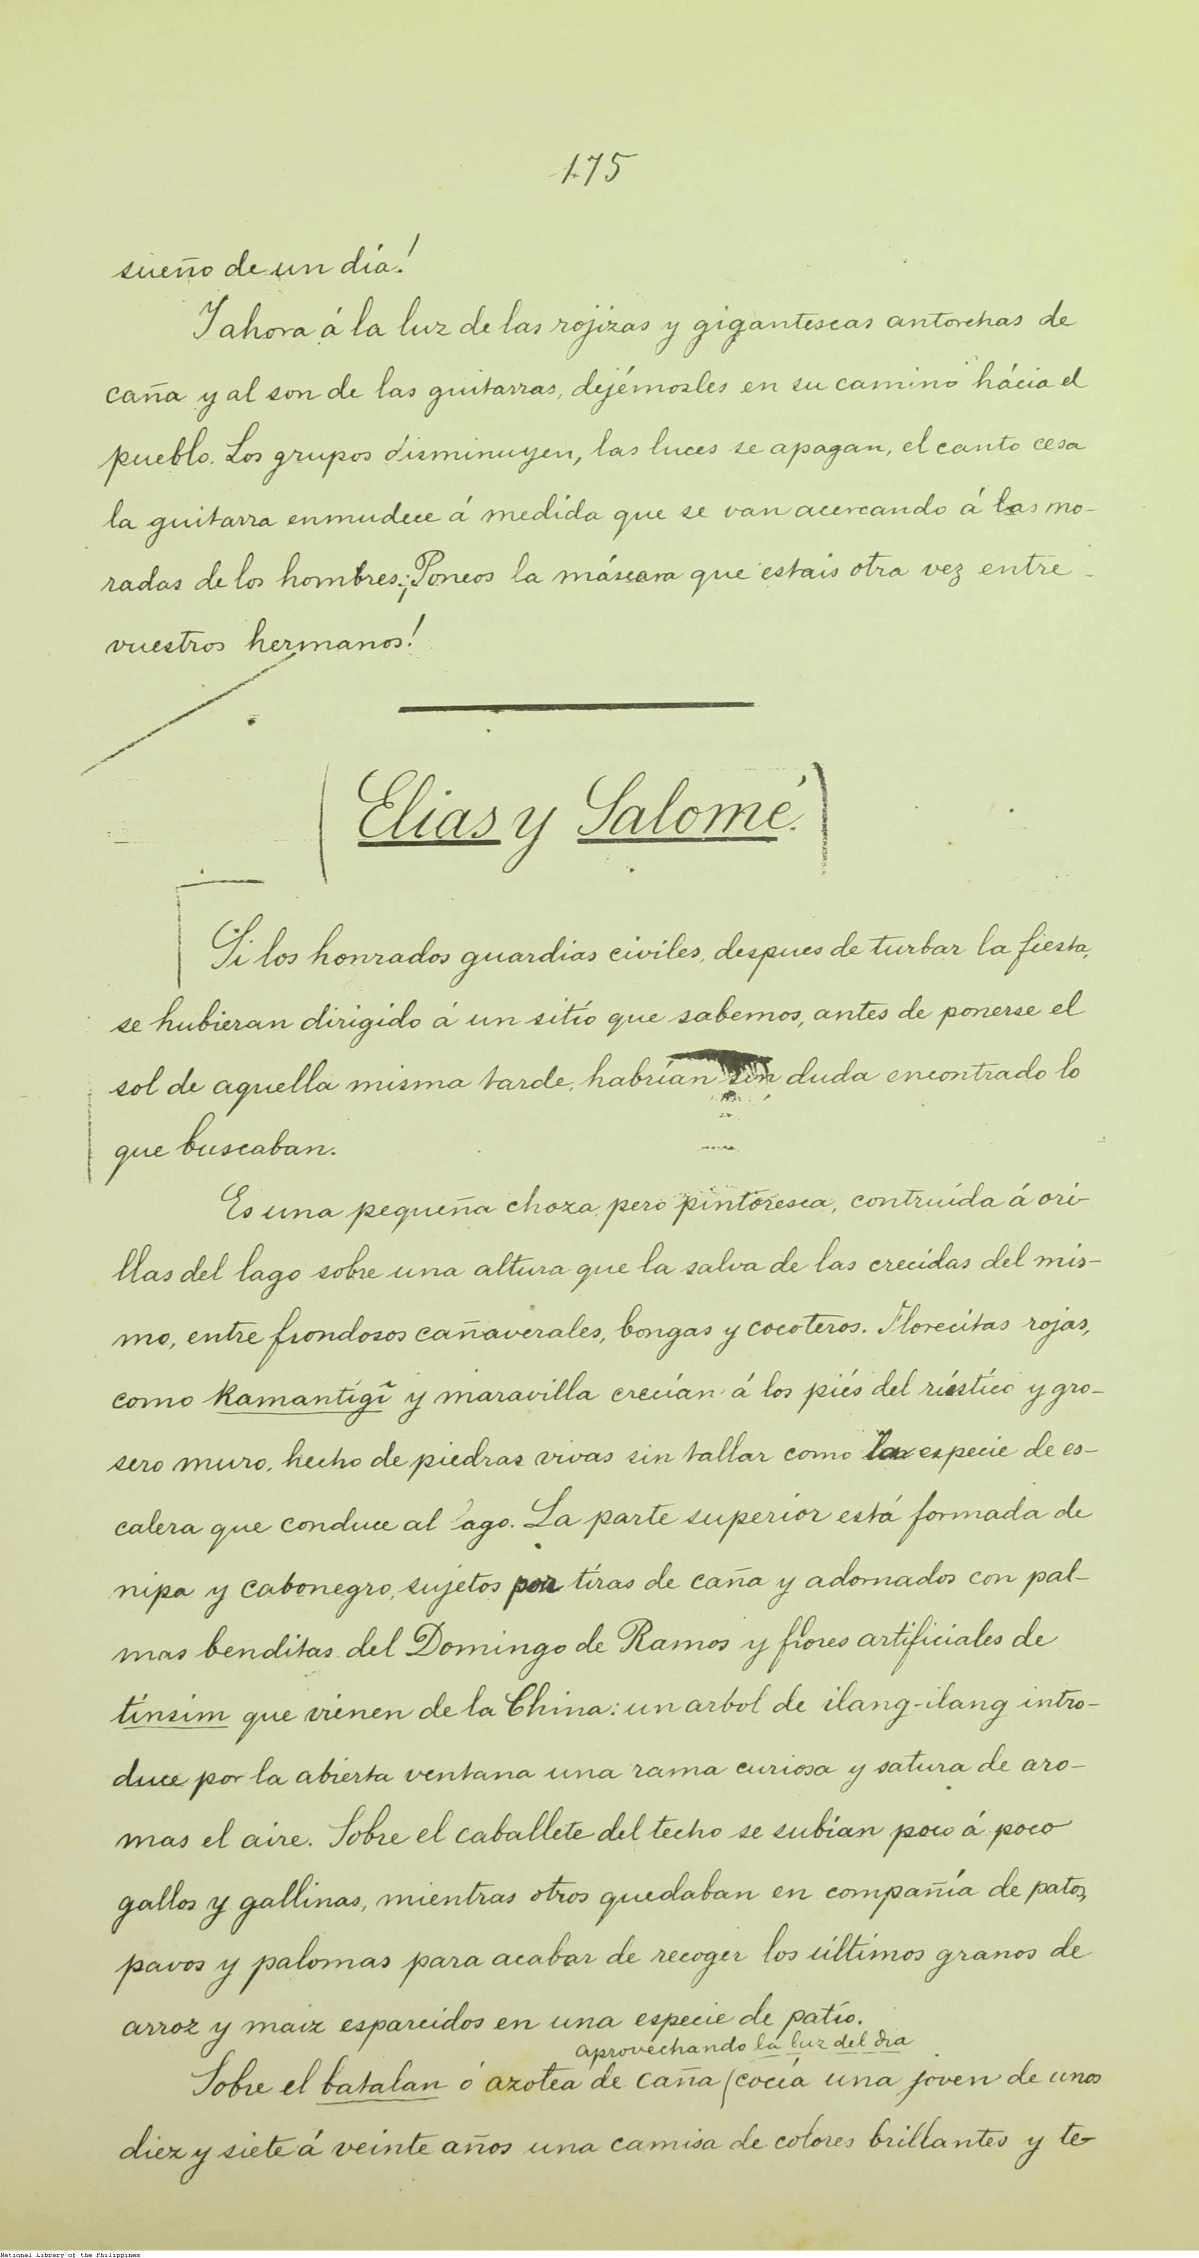 175
sueño de un día!
Y ahora á la luz de las rojizas y gigantescas antorchas de
caña y al son de las guitarras, dejémosles en su camino hácia el
pueblo. Los grupos disminuyen, las luces se apagan, el canto cesa
la guitarra enmudece á medida que se van acercando á las mo-
radas de los hombres; ¡Poneos la máscara que estais otra vez entre
vuestros hermanos!
Elias y Salomé.
Si los honrados guardias civiles, despues de turbar la fiesta,
se hubieran dirigido á un sitio que sabemos, antes de ponerse el
sol de aquella misma tarde, habrían sin duda encontrado lo
que buscaban.
Es una pequeña choza, pero pintoresca, contruida á ori-
llas del lago sobre una altura que la salva de las crecidas del mis-
mo, entre frondosos cañaverales, bongas y cocoteros. Florecitas rojas,
como kamantigî y maravilla crecían á los piés del rústico y gro-
sero muro, hecho de piedras vivas sin tallar como la especie de es-
calera que conduce al lago. La parte superior está formada de
nipa y cabonegro, sujetos por tiras de caña y adornados con pal-
mas benditas del Domingo de Ramos y flores artificiales de
tinsim que vienen de la China: un arbol de ilang-ilang intro-
duce por la abierta ventana una rama curiosa y satura de aro-
mas el aire. Sobre el caballete del techo se subían poco á poco
gallos y gallinas, mientras otros quedaban en compañía de patos,
pavos y palomas para acabar de recoger los últimos granos de
arroz y maiz esparcidos en una especie de patio.
aprovechando la luz del dia
Sobre el batalan ó azotea de caña (cocía una joven de unos
diez y siete á veinte años una camisa de colores brillantes y te-
National Library of the Philippines